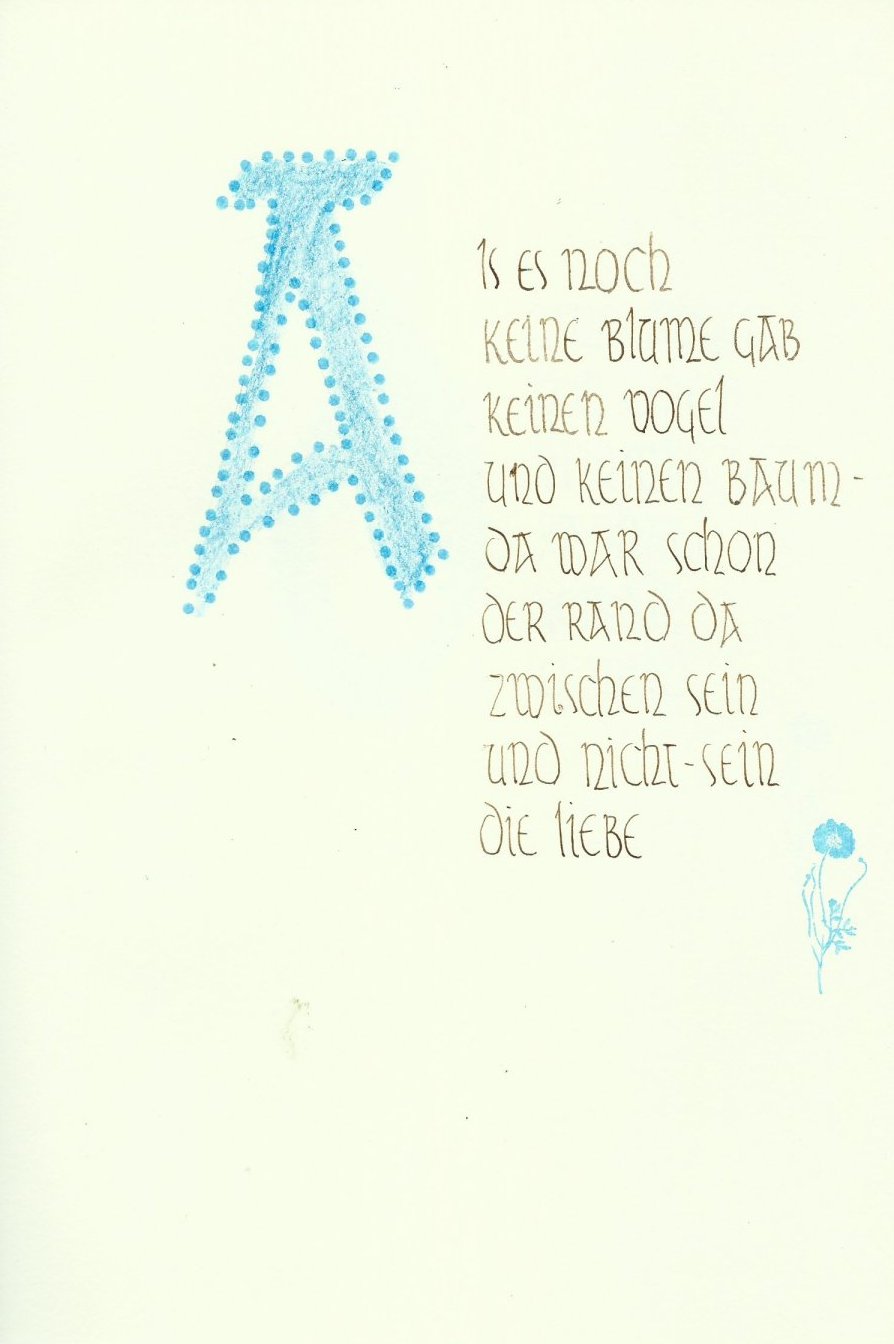 Als es noch
keine Blume gab
keinen Vogel
und keinen Baum-
da war schon
der Rand da
zwischen sein
und nicht-sein
die liebe